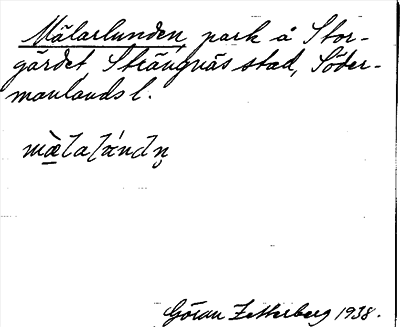 Mälarlunden, park å Stor-
gärdet Strängnäs stad, Söder-
manlands l.
Göran Zetterberg 1938.